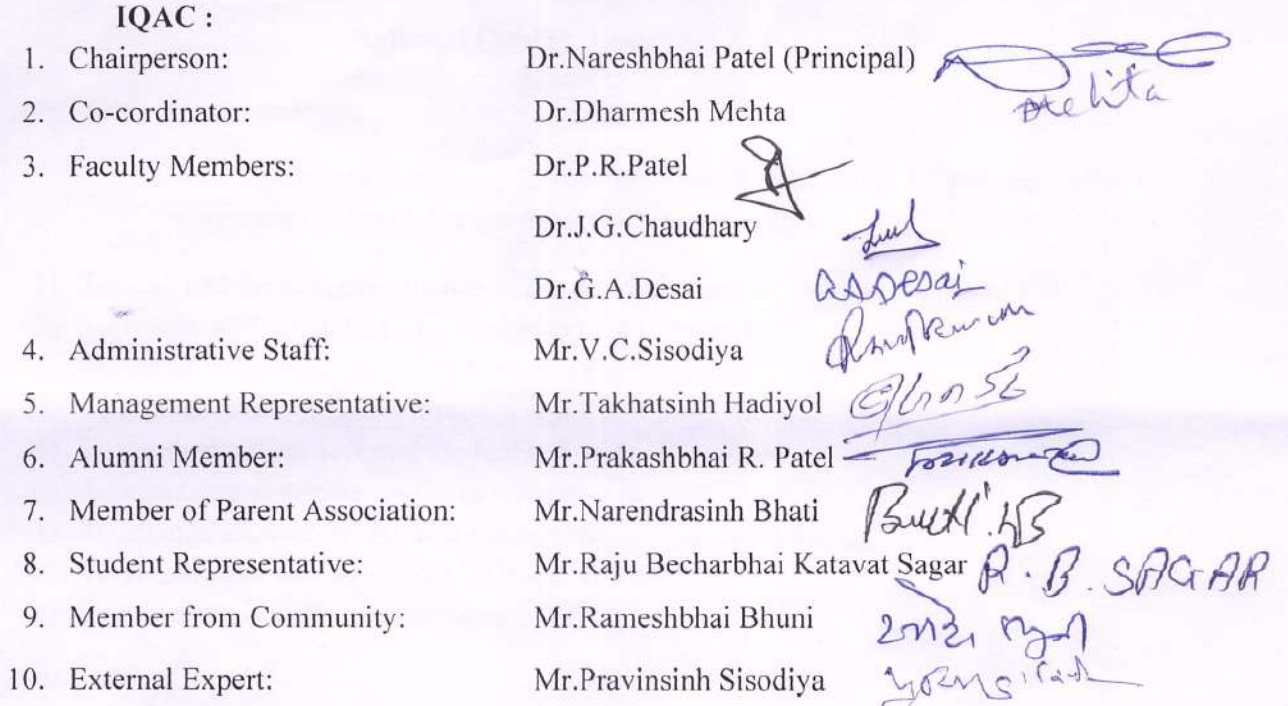 IQAC :
1. Chairperson: Dr.Nareshbhai Patel (Principal)
Mehta
2. Co-cordinator: Dr.Dharmesh Mehta
3. Faculty Members: Dr.P.R.Patel
Dr.J.G.Chaudhary
Dr.G.A.Desai GADesai
4. Administrative Staff: Mr.V.C.Sisodiya
5. Management Representative: Mr.Takhatsinh Hadiyol
6. Alumni Member: Mr.Prakashbhai R. Patel
7. Member of Parent Association: Mr.Narendrasinh Bhati
8. Student Representative: Mr.Raju Becharbhai Katavat Sagar R. B. SAGAR
9. Member from Community: Mr.Rameshbhai Bhuni
10. External Expert: Mr.Pravinsinh Sisodiya